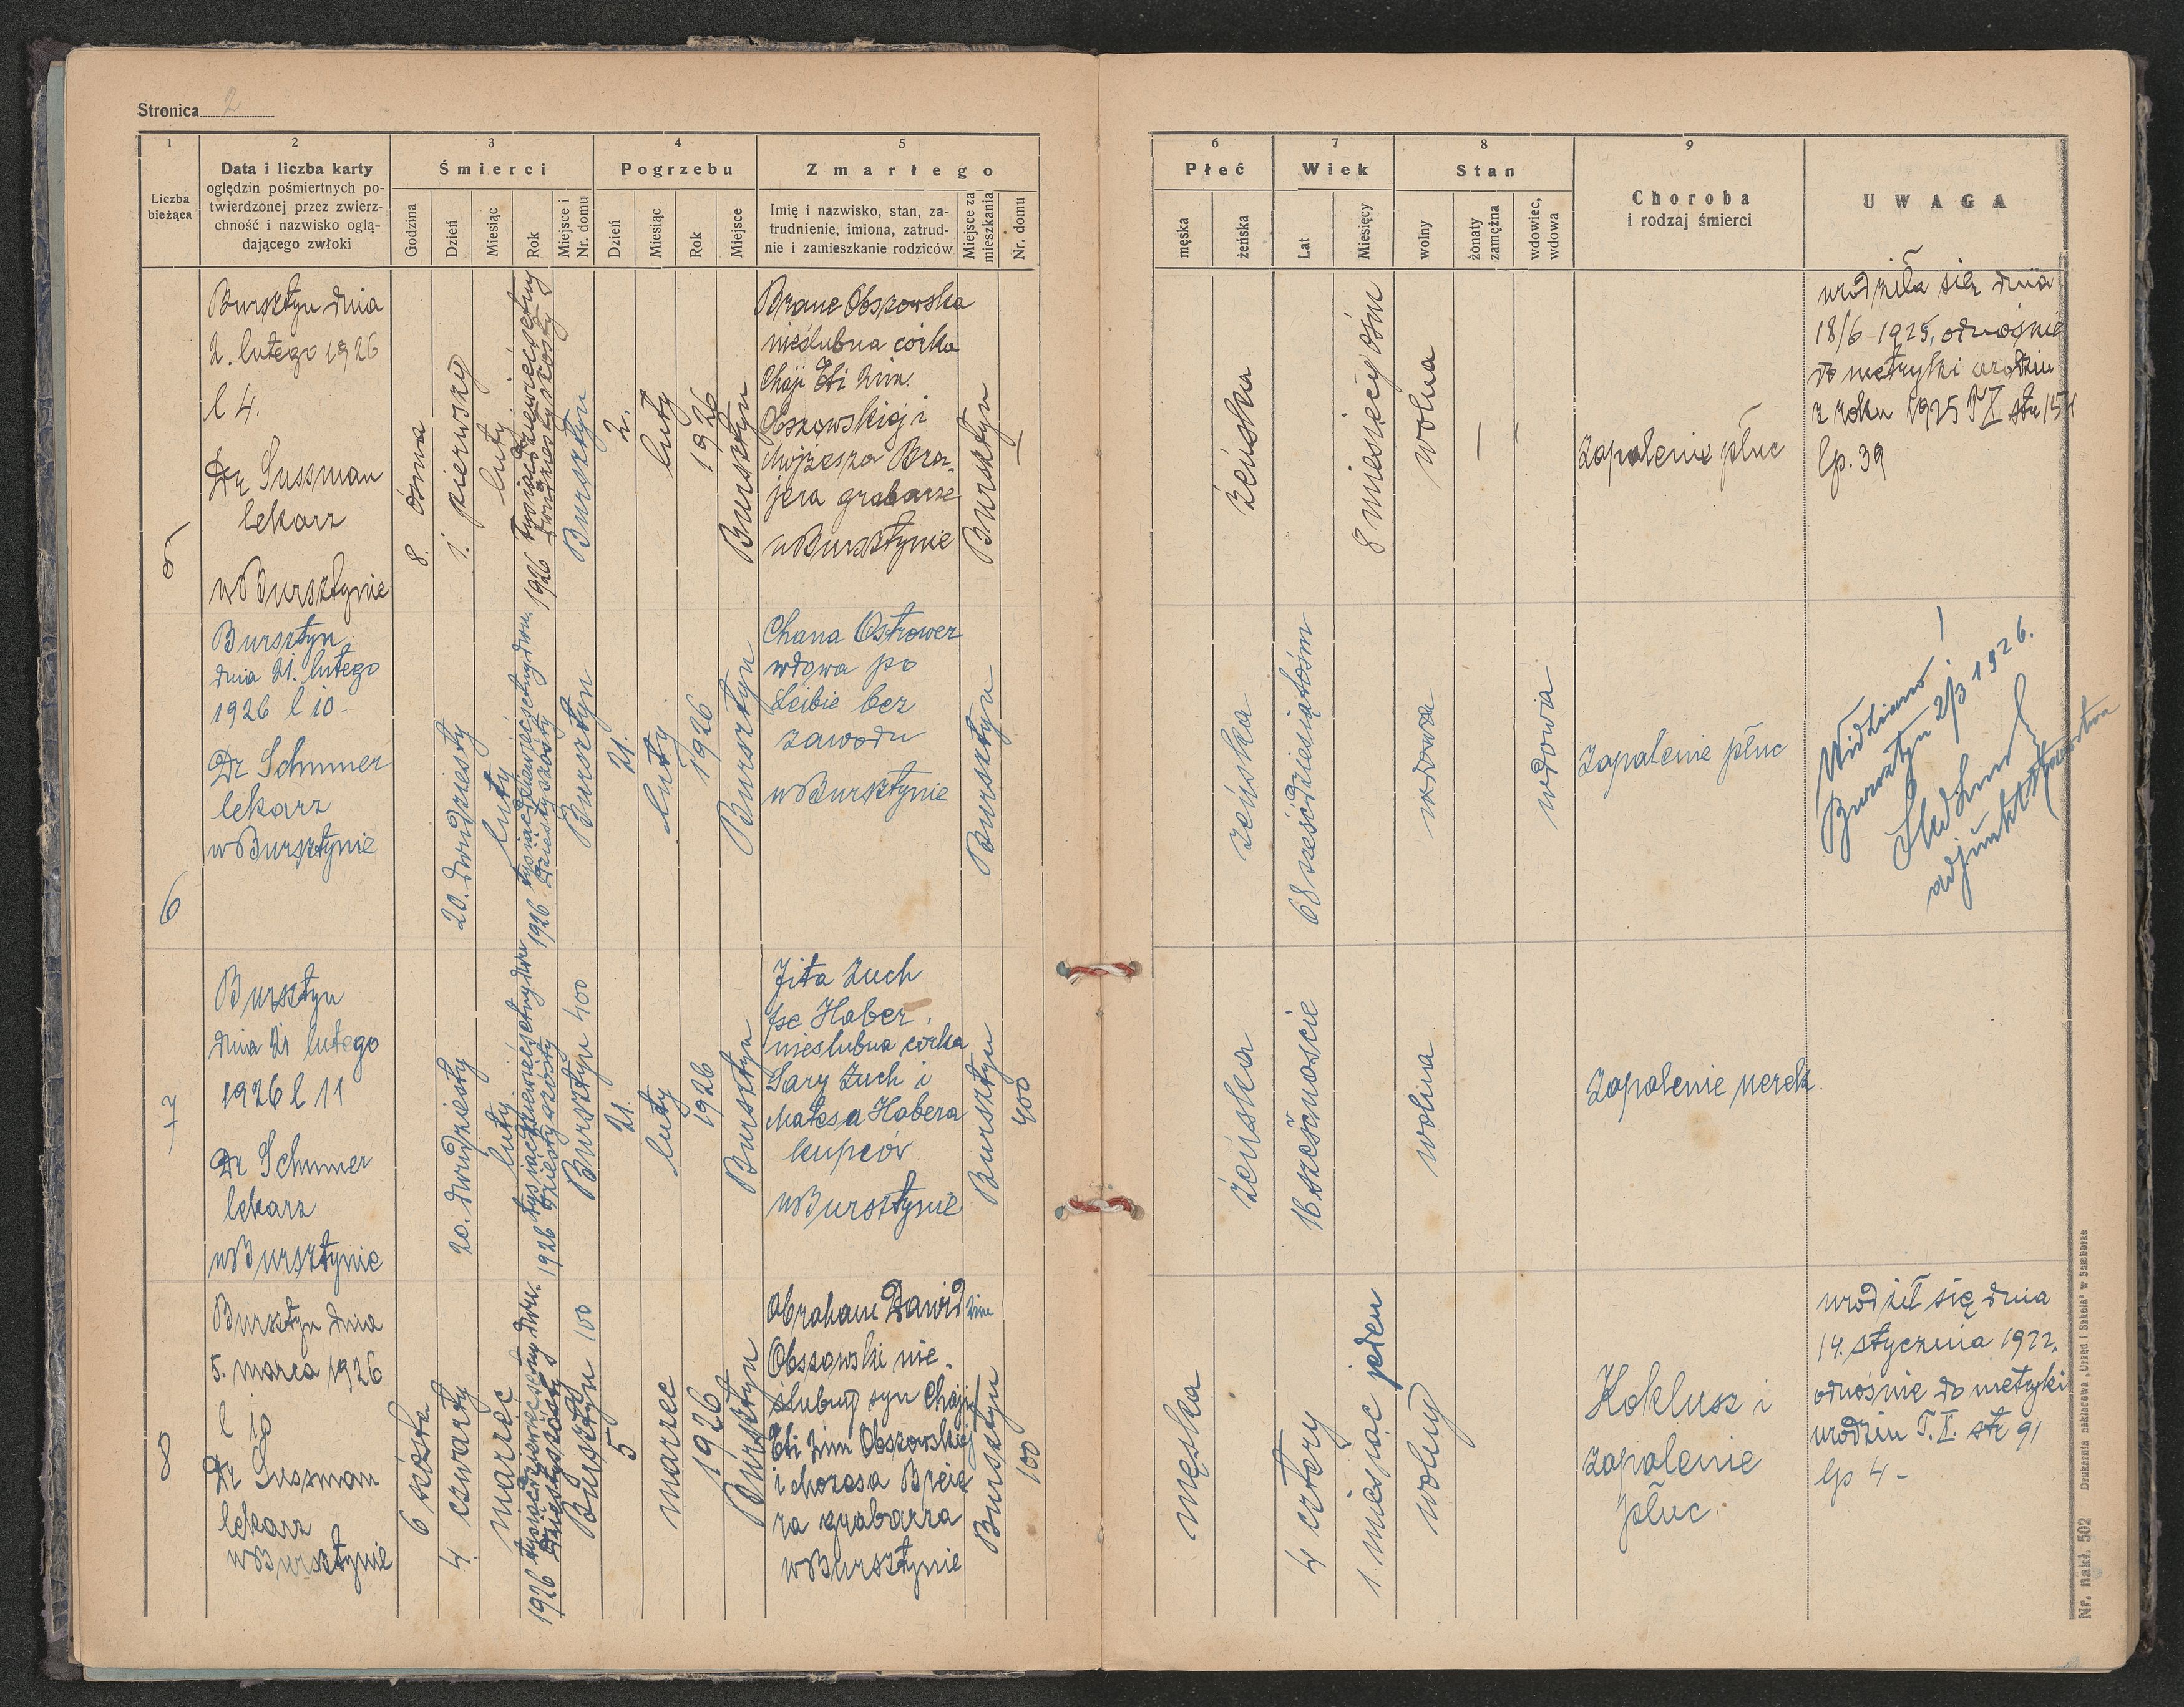 Stronica 2
1
2
3
4
5
Liczba
bieżąca
Data i liczba karty
oględzin pośmiertnych po-
twierdzonej przez zwierz-
chność i nazwisko oglą-
dającego zwłoki
Śmierci
Godzina
Dzień
Miesiąc
Rok
Miejsce i
Nr. domu
Pogrzebu
Dzień
Miesiąc
Rok
Miejsce
Zmarłego
Imię i nazwisko, stan, za-
trudnienie, imiona, zatrud-
nie i zamieszkanie rodziców
Miejsce za
mieszkania
Nr. domu
6
7
8
9
Płeć
męska
żeńska
Wiek
Lat
Miesięcy
Stan
wolny
żonaty
zamężna
wdowiec,
wdowa
Choroba
i rodzaj śmierci
UWAGA
5
Bursztyn dnia
2. lutego 1926
l 4.
Dr Sussman
lekarz
w Bursztynie
8. ósma
1. pierwszy
luty
1926 tysiącdziewięćsetny
dwudziestyszósty
Bursztyn
2.
luty
1926
Bursztyn
Brane Obszowska
nieślubna córka
Chaji Eti 2im.
Obszowskiej i
Mojżesza Bra-
jera grabarze
w Bursztynie
Bursztyn
—
żeńska
8 miesięcy ośm
wolna
—
—
Zapalenie płuc
urodziła się dnia
18/6 1925, odnośnie
do metryki urodzin
z roku 1925 T X str 154
lp. 39
6
Bursztyn
dnia 21. lutego
1926 l 10-
Dr Schmner
lekarz
w Bursztynie
20. dwudziesty
luty
1926 tysiącdziewięćsetny dwu.
dziestyszósty
Bursztyn
21.
luty
1926
Bursztyn
Chana Ostrower
wdowa po
Leibie bez
zawodu
w Bursztynie
Bursztyn
żeńska
68 sześćdziesiątośm
wdowa
wdowa
Zapalenie płuc
Widziano!
Bursztyn 2/3 1926.
adjunkt Starostwa
7
Bursztyn
dnia 21 lutego
1926 l 11
Dr Schmner
lekarz
w Bursztynie
20. dwudziesty
luty
1926 tysiącdziewięćsetny dwu
dziestyszósty
Bursztyn 400
21.
luty
1926
Bursztyn
Jita Zuch
fse Haber,
nieślubna córka
Sary Zuch i
Matesa Habera
kupców
w Bursztynie
Bursztyn
400
żeńska
16 szesnaście
wolna
Zapalenie nerek.
8
Bursztyn dnia
5. marca 1926
l 10
Dr Sussman
lekarz
w Bursztynie
6 szósta
4. czwarty
marzec
1926 tysiącdziewięćsetny dwu.
dziestyszósty
Bursztyn 100
5
marzec
1926
Bursztyn
Abraham Dawid 2im
Obszowski nie-
ślubny syn Chaji
Eti 2im Obszowskiej
i Mozesa Breie
ra grabarza
w Bursztynie
Bursztyn
100
męska
4 cztery
1. miesiąc jeden
wolny
Koklusz i
zapalenie
płuc.
urodził się dnia
14. stycznia 1922.
odnośnie do metryki
urodzin T. X. str 91
lp 4-
Nr. nakł. 502 Drukarnia nakładowa „Urząd i Szkoła" w Samborze